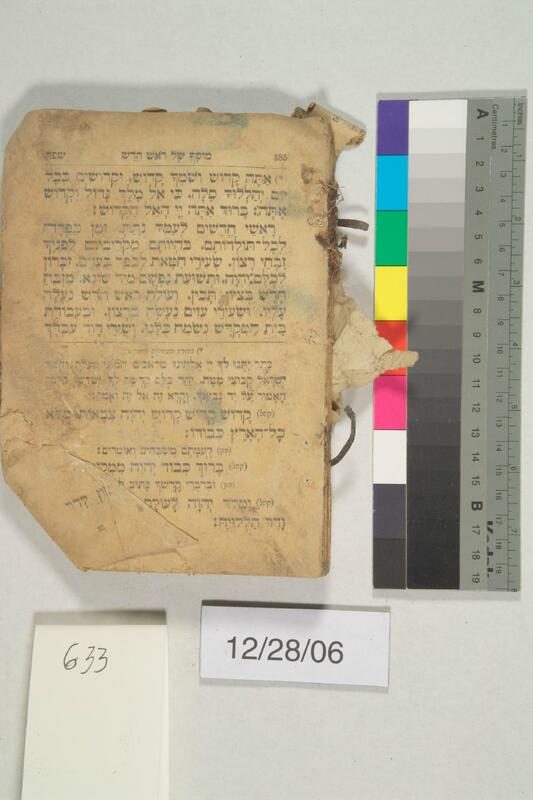 385 מוסף של ראש חדש שפה
אתה קדוש ושמך קדוש, וקדושים בכל
יום יהללוך סלה. כי אל מלך גדול וקדוש
אתה: ברוך אתה יי האל הקדוש:
ראשי חדשים לעמך נתת. זמן כפרה
לכל־תולדותם. בהיותם מקריבים לפניך
זבחי רצון. ושעירי חטאת לכפר בעדם. זכרון
לכלם יהיו. ותשועת נפשם מיד שונא. מזבח
חדש בציון תכין. ועולת ראש חדש נעלה
עליו. ושעירי עזים נעשה ברצון. ובעבודת
בית המקדש נשמח כלנו. ובשירי דוד עבדך
כתר יתנו לך יי אלהינו מלאכים המוני מעלה
ישראל קבוצי מטה. יחד כלם קדושה לך ישלשו
האמור על יד נביאך. וקרא זה אל זה ואמר:
(קהל) קדוש קדוש קדוש יהוה צבאות. מלא
כל־הארץ כבודו:
(חזן) לעמתם משבחים ואומרים:
(קהל) ברוך כבוד יהוה
(חזן) ובדברי קדשך כתוב
(קהל) ימלך יהוה לעולם
ודר הללויה:
Centimetres
Inches
A
1
2
3
4
5
6
M
8
9
10
11
12
13
14
15
B
17
18
19
633
12/28/06